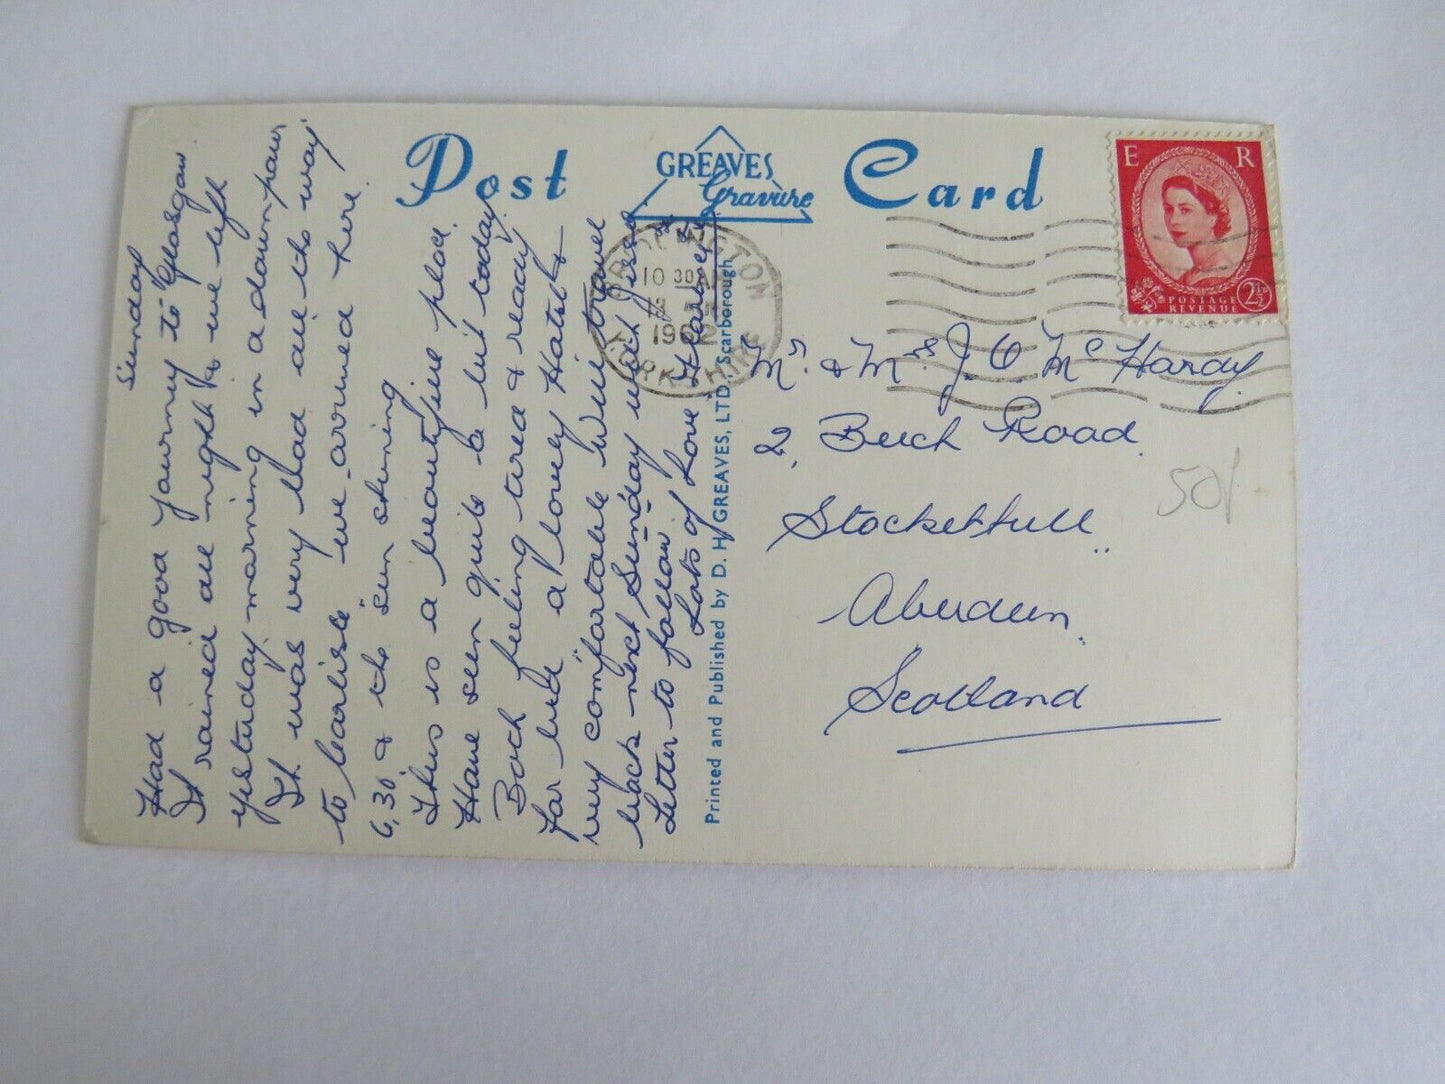 Post Card
GREAVES
Gravure
E R
POSTAGE
REVENUE
2½
BRIDLINGTON
10 30 AM
1962
YORKSHIRE
Sunday
Had a good journey to Glasgow.
It rained all night & we left
yesterday morning in a downpour
It was very bad all the way
to Carlisle we arrived here
6,30 & the sun shining
This is a beautiful place.
Have seen quite a bit today
Both feeling tired & ready
for bed a lovely Hotel &
very comfortable Will travel
back next Sunday
Letter to follow.
Lots of Love
Printed and Published by D. H. GREAVES, LTD., Scarborough
Mr. & Mrs J. O Mc Hardy
2, Beech Road.
Stockethill
Aberdeen.
Scotland